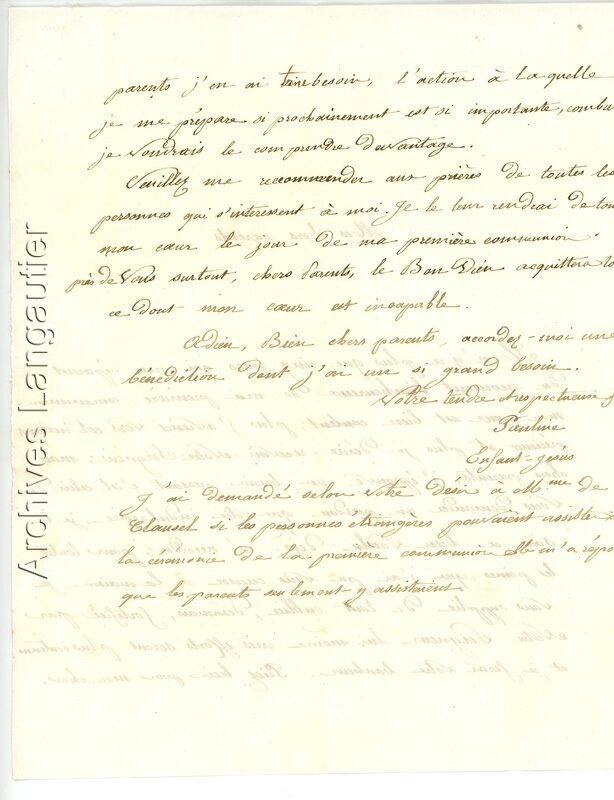 parents j'en ai besoin, l'action à la quelle
je me prépare si prochainement est si importante, combi
je voudrais le comprendre davantage.
Veuillez me recommander aux prières de toutes les
personnes qui s'interessent à moi. Je le leur rendrai de tou
mon cœur le jour de ma première communion
près de Vous surtout, chers Parents, le Bon Dieu acquittera
ce dont mon cœur est incapable.
Adieu, Bien chers parents, accordez-moi une
bénédiction dont j'ai un si grand besoin.
Votre tendre et respectueuse f
Pauline
Enfant-Jésus
J'ai demandé selon votre désir à Mme de
Clausel si les personnes étrangères pouvaient assister
la cérémonie de la première communion elle m'a répo
que les parents seulement y assistaient.
Archives Langautier